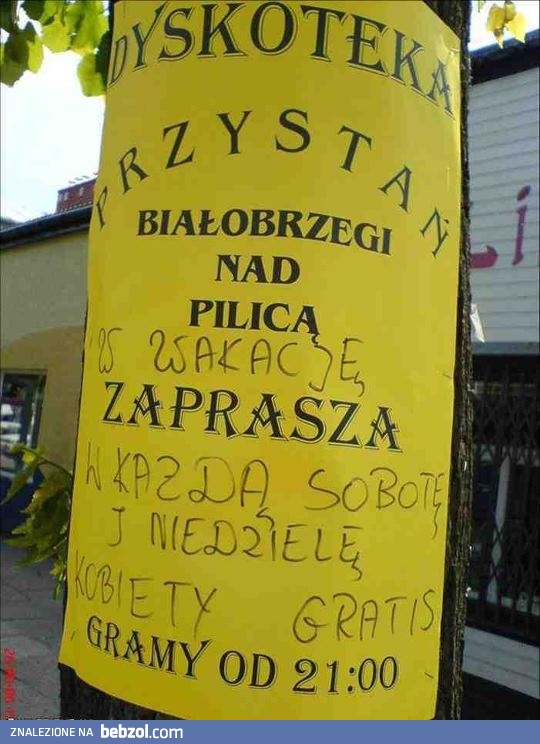 DYSKOTEKA
PRZYSTAŃ
BIAŁOBRZEGI
NAD
PILICĄ
W WAKACJĘ
ZAPRASZA
W KAZDĄ SOBOTĘ
J NIEDZIELĘ
KOBIETY GRATIS
GRAMY OD 21:00
ZNALEZIONE NA bebzol.com